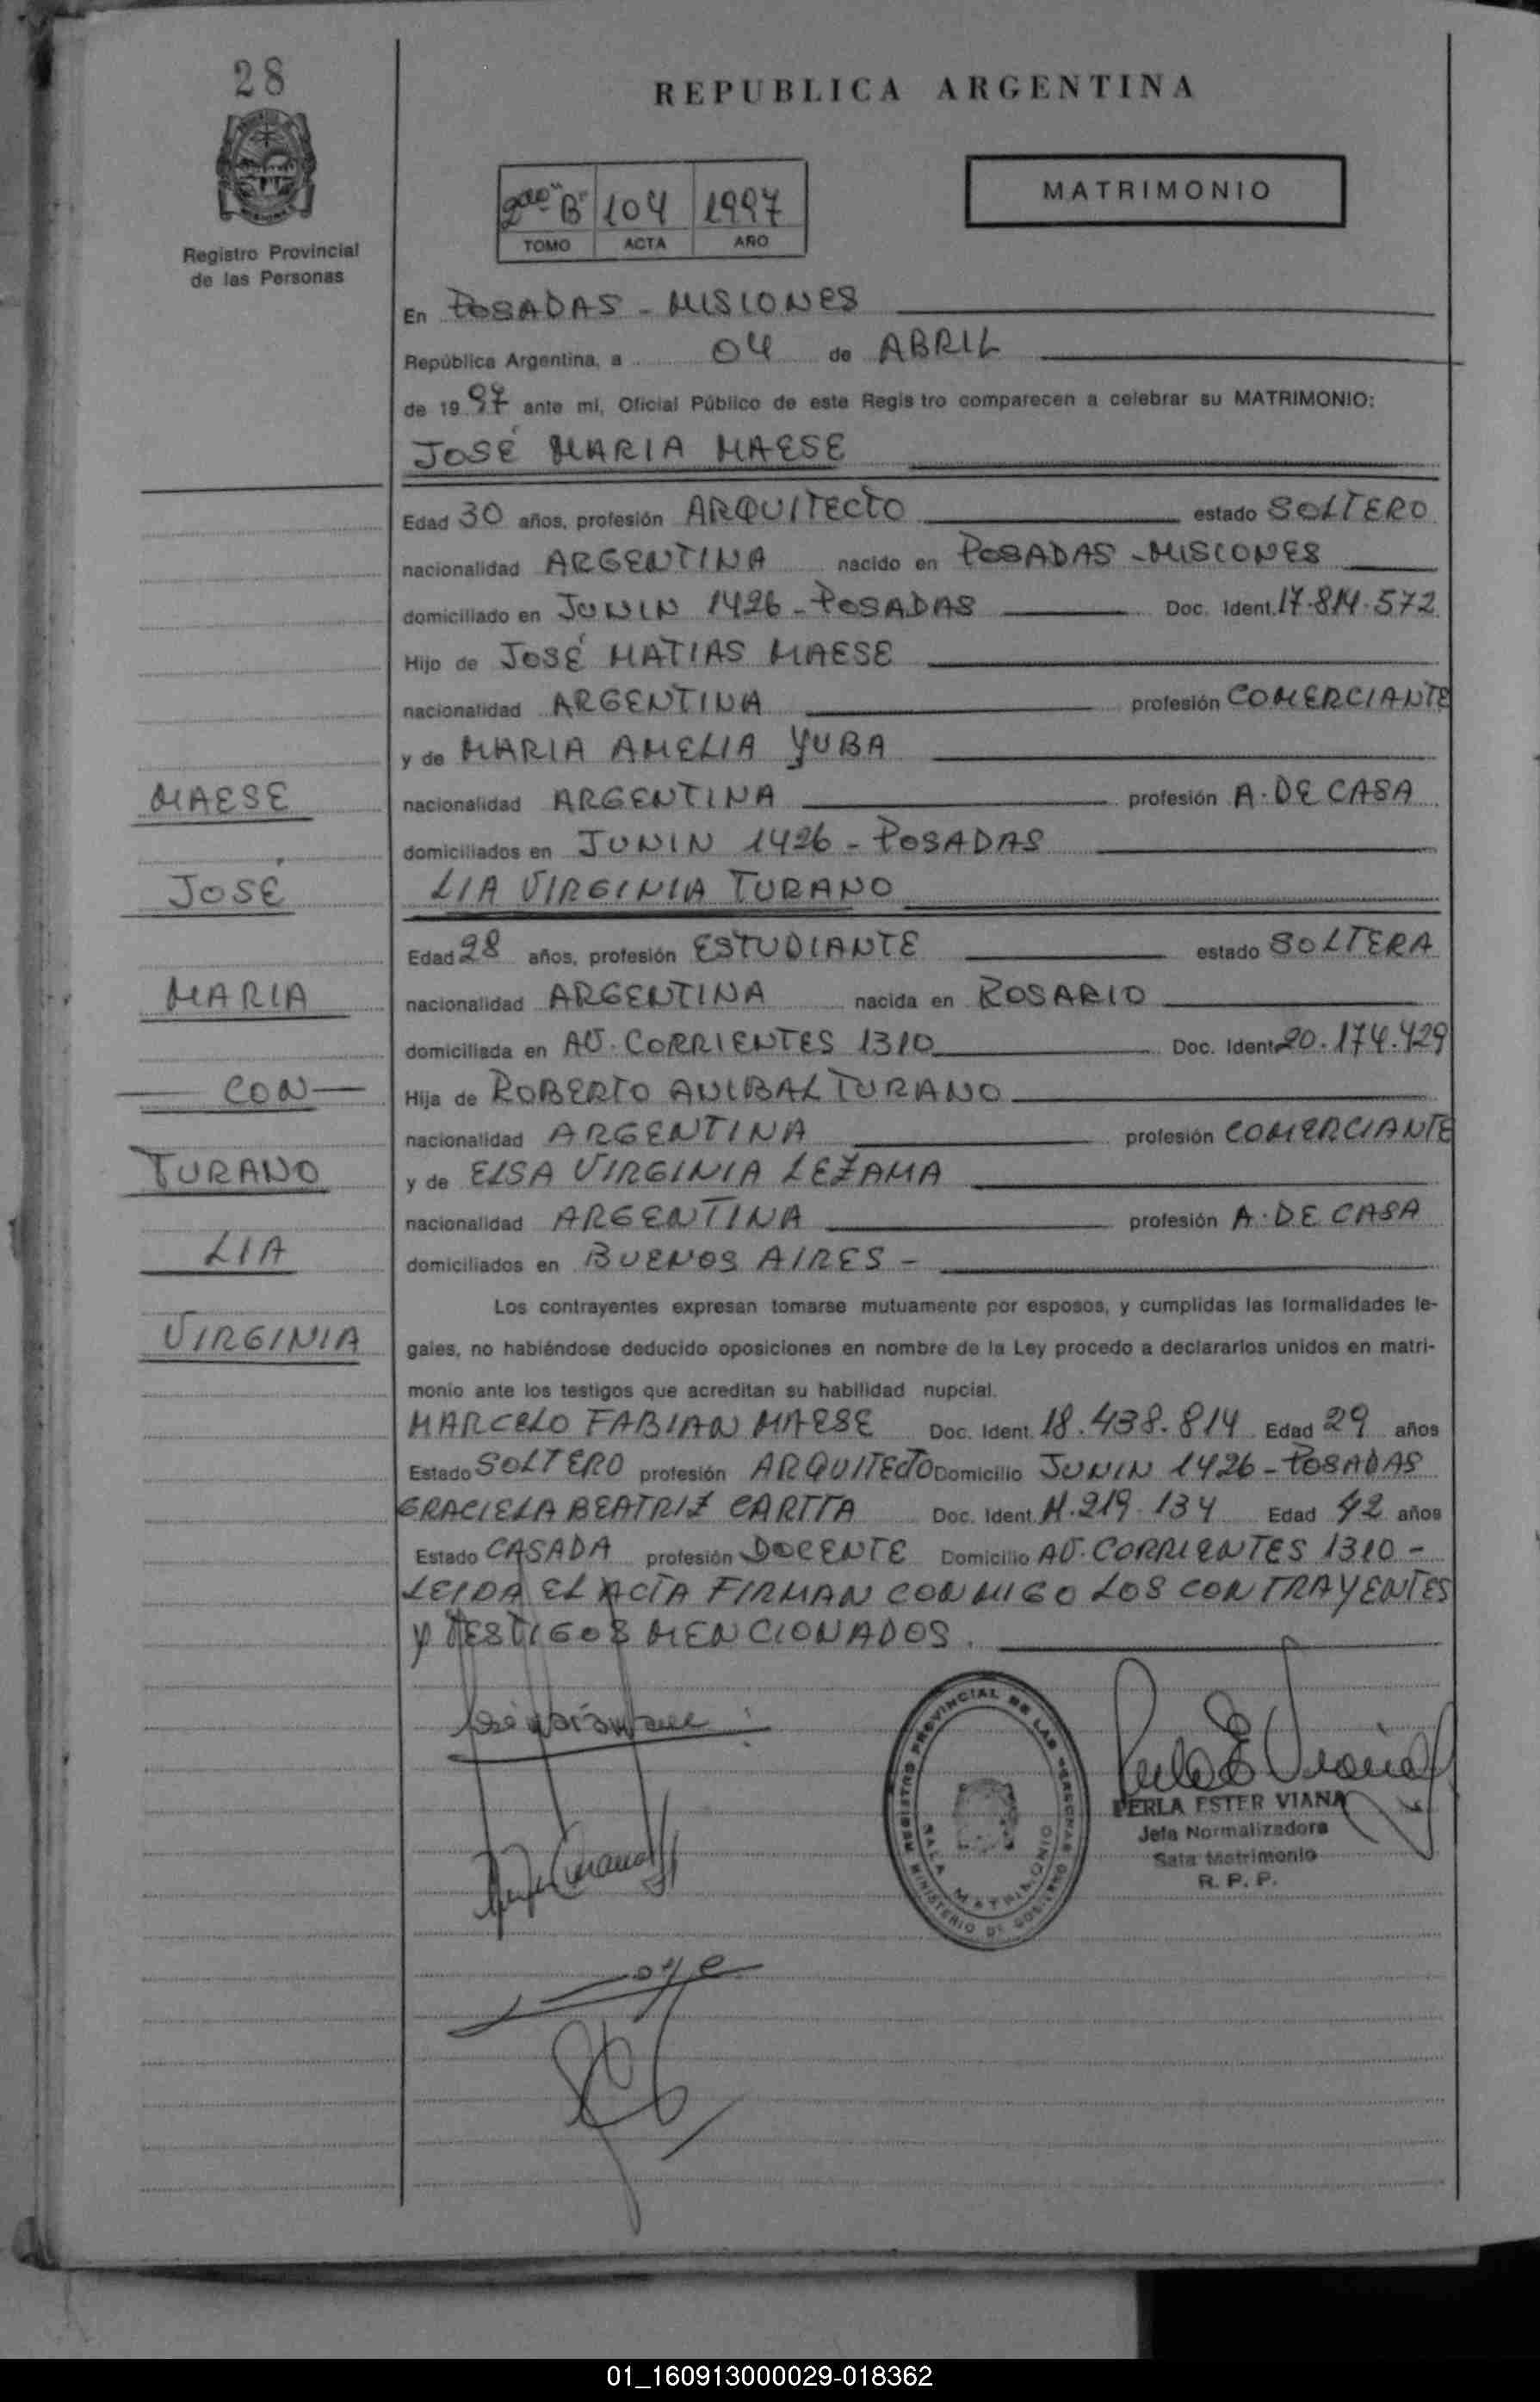 28
REPUBLICA ARGENTINA
Registro Provincial
de las Personas
2do "B" 104 1997
TOMO ACTA AÑO
MATRIMONIO
En POSADAS - MISIONES
República Argentina, a 04 de ABRIL
de 1997 ante mi, Oficial Público de este Registro comparecen a celebrar su MATRIMONIO:
JOSÉ MARIA MAESE
Edad 30 años, profesión ARQUITECTO estado SOLTERO
nacionalidad ARGENTINA nacido en POSADAS - MISIONES
domiciliado en JUNIN 1426 - POSADAS Doc. Ident. 17.814.572
Hijo de JOSÉ MATIAS MAESE
nacionalidad ARGENTINA profesión COMERCIANTE
y de MARIA AMELIA YUBA
nacionalidad ARGENTINA profesión A. DE CASA
domiciliados en JUNIN 1426 - POSADAS
LIA VIRGINIA TURANO
Edad 28 años, profesión ESTUDIANTE estado SOLTERA
nacionalidad ARGENTINA nacida en ROSARIO
domiciliada en AV. CORRIENTES 1310 Doc. Ident. 20.174.429
Hija de ROBERTO ANIBAL TURANO
nacionalidad ARGENTINA profesión COMERCIANTE
y de ELSA VIRGINIA LEZAMA
nacionalidad ARGENTINA profesión A. DE CASA
domiciliados en BUENOS AIRES -
Los contrayentes expresan tomarse mutuamente por esposos, y cumplidas las formalidades le-
gales, no habiéndose deducido oposiciones en nombre de la Ley procedo a declararlos unidos en matri-
monio ante los testigos que acreditan su habilidad nupcial.
MARCELO FABIAN MAESE Doc. Ident. 18.438.814 Edad 29 años
Estado SOLTERO profesión ARQUITECTO Domicilio JUNIN 1426 - POSADAS
GRACIELA BEATRIZ CARTTA Doc. Ident. 11.219.134 Edad 42 años
Estado CASADA profesión DOCENTE Domicilio AV. CORRIENTES 1310 -
LEIDA EL ACTA FIRMAN CONMIGO LOS CONTRAYENTES
Y TESTIGOS MENCIONADOS.
MAESE
JOSÉ
MARIA
CON
TURANO
LIA
VIRGINIA
REGISTRO PROVINCIAL DE LAS PERSONAS
SALA MATRIMONIO
MINISTERIO DE GOBIERNO
PERLA ESTER VIANA
Jefa Normalizadora
Sala Matrimonio
R. P. P.
01_160913000029-018362